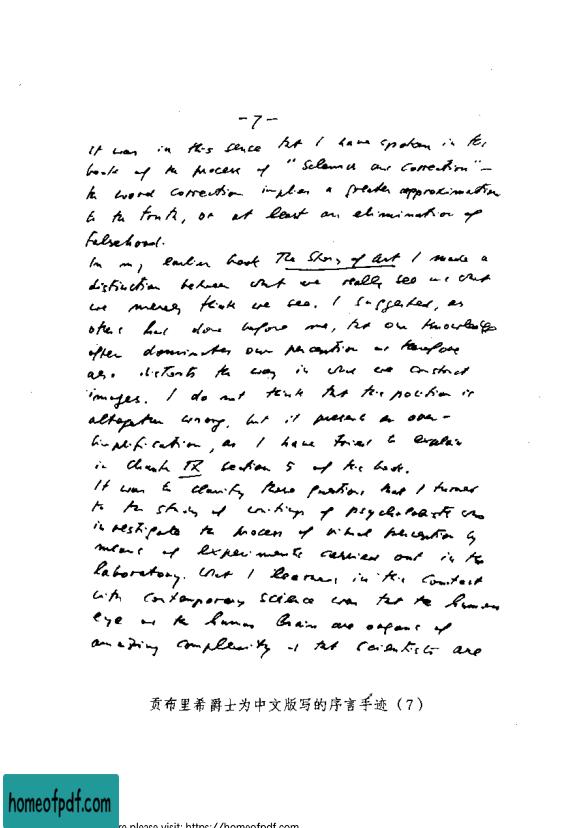 -7-
It was in this sense that I have spoken in this
book of the process of "Schema and Correction" –
the word correction implies a greater approximation
to the truth, or at least an elimination of
falsehood.
In my earlier book The Story of Art I made a
distinction between what we really see and what
we merely think we see. I suggested, as
others had done before me, that our knowledge
often dominates our perception and therefore
also distorts the way in which we construct
images. I do not think that this position is
altogether wrong, but it presents an over-
simplification, as I have tried to explain
in Chapter IX section 5 of this book.
It was to clarify these questions that I turned
to the study of writings of psychologists who
investigate the process of visual perception by
means of experiments carried out in the
laboratory. What I learned in this contact
with contemporary science was that the human
eye and the human brain are organs of
amazing complexity and that scientists are
贡布里希爵士为中文版写的序言手迹(7)
homeofpdf.com
re please visit: https://homeofpdf.com